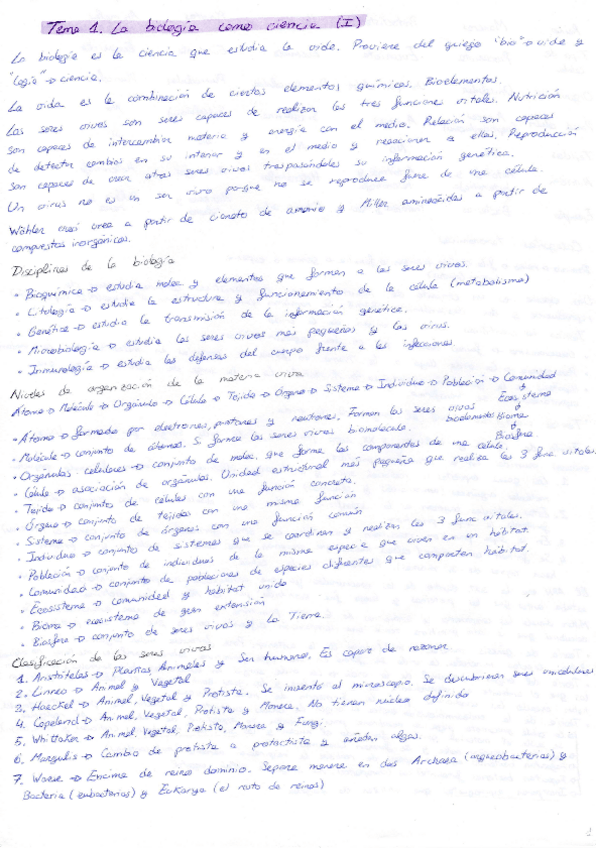 Tema 1. La biología como ciencia (I)
La biología es la ciencia que estudia la vida. Proviene del griego "bio"→vida y
"logía"→ciencia.
La vida es la combinación de ciertos elementos químicos. Bioelementos.
Los seres vivos son seres capaces de realizar las tres funciones vitales. Nutrición
son capaces de intercambiar materia y energía con el medio. Relación son capaces
de detectar cambios en su interior y en el medio y reaccionar a ellos. Reproducción
son capaces de crear otros seres vivos traspasándoles su información genética.
Un virus no es un ser vivo porque no se reproduce fuera de una célula.
Wöhler creó urea a partir de cianato de amonio y Miller aminoácidos a partir de
compuestos inorgánicos.
Disciplinas de la biología
• Bioquímica → estudia molec y elementos que forman a los seres vivos.
• Citología → estudia la estructura y funcionamiento de la célula (metabolismo)
• Genética → estudia la transmisión de la información genética.
• Microbiología → estudia los seres vivos más pequeños y los virus.
• Inmunología → estudia las defensas del cuerpo frente a las infecciones
Niveles de organización de la materia viva
Átomo → Molécula → Orgánulo → Célula → Tejido → Órgano → Sistema → Individuo → Población → Comunidad
Ecosistema
• Átomo → formado por electrones, protones y neutrones. Forman los seres vivos bioelementos Bioma
• Molécula → conjunto de átomos. Si forma los seres vivos biomolécula. Biosfera
• Orgánulos celulares → conjunto de molec. que forma los componentes de una célula.
• Célula → asociación de orgánulos. Unidad estructural más pequeña que realiza las 3 func vitales.
• Tejido → conjunto de células con una función concreta.
• Órgano → conjunto de tejidos con una misma función
• Sistema → conjunto de órganos con una función común
• Individuo → conjunto de sistemas que se coordinan y realizan las 3 func vitales.
• Población → conjunto de individuos de la misma especie que viven en un hábitat.
• Comunidad → conjunto de poblaciones de especies diferentes que comparten hábitat.
• Ecosistema → comunidad y hábitat unido
• Bioma → ecosistema de gran extensión
• Biosfera → conjunto de seres vivos y la Tierra.
Clasificación de los seres vivos
1. Aristóteles → Plantas, Animales y Ser humano. Es capaz de razonar
2. Linneo → Animal y Vegetal
3. Haeckel → Animal, Vegetal y Protista. Se inventó el microscopio. Se descubrieron seres unicelulares
4. Copeland → Animal, Vegetal, Protista y Monera. No tienen núcleo definido
5. Whittaker → Animal, Vegetal, Protista, Monera y Fungi.
6. Margulis → Cambio de protista a protoctista y añaden algas.
7. Woese → Encima de reino dominio. Separa monera en dos Archaea (arqueobacterias) y
Bacteria (eubacterias) y Eukarya (el resto de reinos)